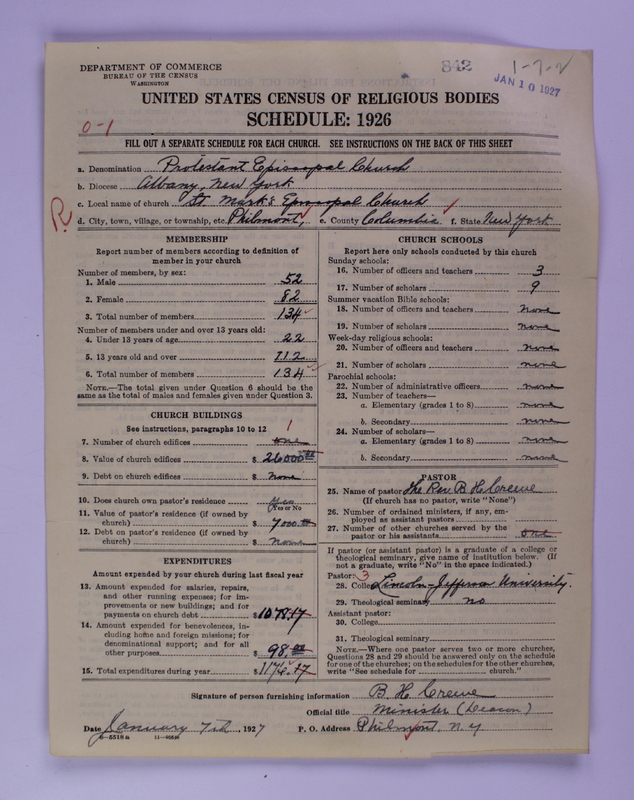 DEPARTMENT OF COMMERCE
BUREAU OF THE CENSUS
WASHINGTON
842
1-7-2
JAN 10 1927
UNITED STATES CENSUS OF RELIGIOUS BODIES
SCHEDULE: 1926
0-1
FILL OUT A SEPARATE SCHEDULE FOR EACH CHURCH. SEE INSTRUCTIONS ON THE BACK OF THIS SHEET
a. Denomination Protestant Episcopal Church
b. Diocese Albany, New York
c. Local name of church St. Mark's Episcopal Church
R
d. City, town, village, or township, etc. Philmont, e. County Columbia f. State New York
MEMBERSHIP
Report number of members according to definition of
member in your church
Number of members, by sex:
1. Male 52
2. Female 82
3. Total number of members 134
Number of members under and over 13 years old:
4. Under 13 years of age 22
5. 13 years old and over 112
6. Total number of members 134
NOTE.—The total given under Question 6 should be the
same as the total of males and females given under Question 3.
CHURCH BUILDINGS
See instructions, paragraphs 10 to 12
1
7. Number of church edifices one
8. Value of church edifices $ 26000.00
9. Debt on church edifices $ None
10. Does church own pastor's residence Yes
Yes or No
11. Value of pastor's residence (if owned by
church) $ 7000.00
12. Debt on pastor's residence (if owned by
church) $ None
EXPENDITURES
Amount expended by your church during last fiscal year
13. Amount expended for salaries, repairs,
and other running expenses; for im-
provements or new buildings; and for
payments on church debt $1078.17
14. Amount expended for benevolences, in-
cluding home and foreign missions; for
denominational support; and for all
other purposes $ 98.00
15. Total expenditures during year $1176.17
CHURCH SCHOOLS
Report here only schools conducted by this church
Sunday schools:
16. Number of officers and teachers 3
17. Number of scholars 9
Summer vacation Bible schools:
18. Number of officers and teachers none
19. Number of scholars none
Week-day religious schools:
20. Number of officers and teachers none
21. Number of scholars none
Parochial schools:
22. Number of administrative officers none
23. Number of teachers—
a. Elementary (grades 1 to 8) none
b. Secondary none
24. Number of scholars—
a. Elementary (grades 1 to 8) none
b. Secondary none
PASTOR
25. Name of pastor The Rev. B. H. Crewe
(If church has no pastor, write "None")
26. Number of ordained ministers, if any, em-
ployed as assistant pastors
27. Number of other churches served by the
pastor or his assistants one
If pastor (or assistant pastor) is a graduate of a college or
theological seminary, give name of institution below. (If
not a graduate, write "No" in the space indicated.)
Pastor: 3
28. College Lincoln-Jefferson University.
29. Theological seminary no
Assistant pastor:
30. College
31. Theological seminary
NOTE.—Where one pastor serves two or more churches,
Questions 28 and 29 should be answered only on the schedule
for one of the churches; on the schedules for the other churches,
write "See schedule for church."
Signature of person furnishing information B. H. Crewe
Official title Minister (Deacon)
Date January 7th, 1927 P. O. Address Philmont, N.Y.